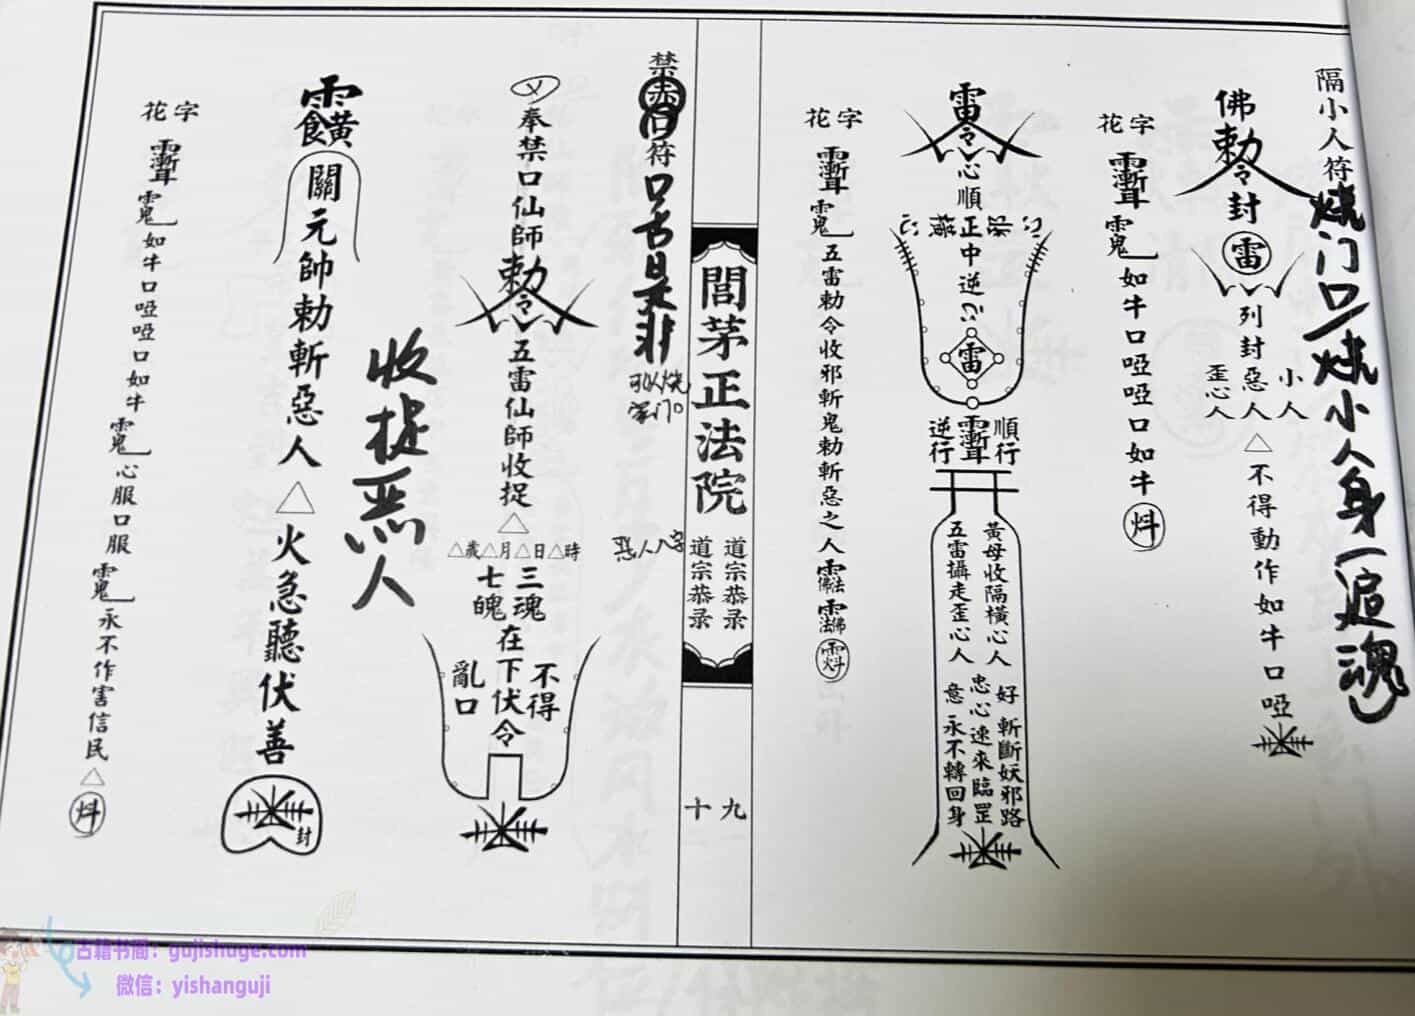 隔小人符
烧门口/烧小人身一追魂
佛敕令封雷
列封惡人
小人
歪心人
△不得動作如牛口啞
花字
如牛口啞啞口如牛
雷令心順
正中逆
雷
順行
逆行
黃母收隔橫心人
五雷攝走歪心人
好斬斷妖邪路
忠心速來臨罡
意永不轉回身
花字
五雷勅令收邪斬鬼勅斬惡之人
閭茅正法院
道宗恭录
道宗恭录
十九
禁赤口符
口舌是非
可以烧
家门口
恶人八字
奉禁口仙師敕令
五雷仙師收捉△
△歲△月△日△時
三魂
七魄
在下伏令
不得
亂口
收捉恶人
關元帥勅斬惡人△火急聽伏善
封
花字
如牛口啞啞口如牛
心服口服
永不作害信民△
古籍书阁：gujishuge.com
微信：yishanguji